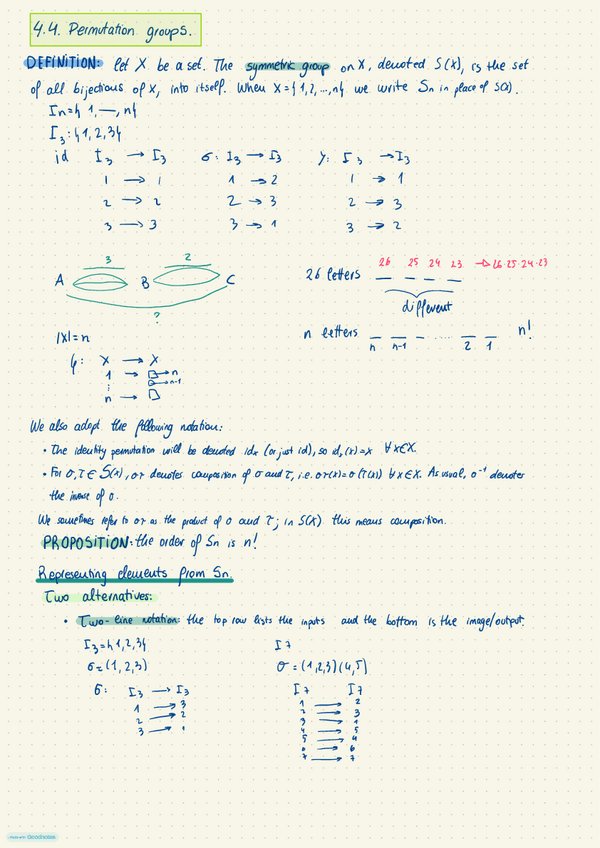 4.4. Permutation groups.
DEFINITION: let X be a set. The symmetric group on X, denoted S(X), is the set
of all bijections of X, into itself. When X={1,2,...,n} we write Sn in place of S(X).
In={1,—,n}
I3:{1,2,3}
id I3 → I3 σ: I3 → I3 γ: I3 → I3
1 → 1 1 → 2 1 → 1
2 → 2 2 → 3 2 → 3
3 → 3 3 → 1 3 → 2
3 2 26 25 24 23 → 26·25·24·23
A B C 26 letters _ _ _ _
? different
n letters _ _ _ .... _ _ n!
n n-1 2 1
|X|=n
φ: X → X
1 → □ → n
⋮ □ → n-1
n → □
We also adopt the following notation:
• The identity permutation will be denoted idx (or just id), so idx(x)=x ∀x∈X.
• For σ,τ ∈ S(X), στ denotes composition of σ and τ, i.e. στ(x)=σ(τ(x)) ∀x∈X. As usual, σ⁻¹ denotes
the inverse of σ.
We sometimes refer to στ as the product of σ and τ; in S(X) this means composition.
PROPOSITION: the order of Sn is n!
Representing elements from Sn.
Two alternatives:
• Two-line notation: the top row lists the inputs and the bottom is the image/output.
I3={1,2,3} I7
σ=(1,2,3) σ=(1,2,3)(4,5)
σ: I3 → I3 I7 I7
1 → 3 1 → 2
2 → 2 2 → 3
3 → 1 3 → 1
4 → 5
5 → 4
6 → 6
7 → 7
Made with Goodnotes